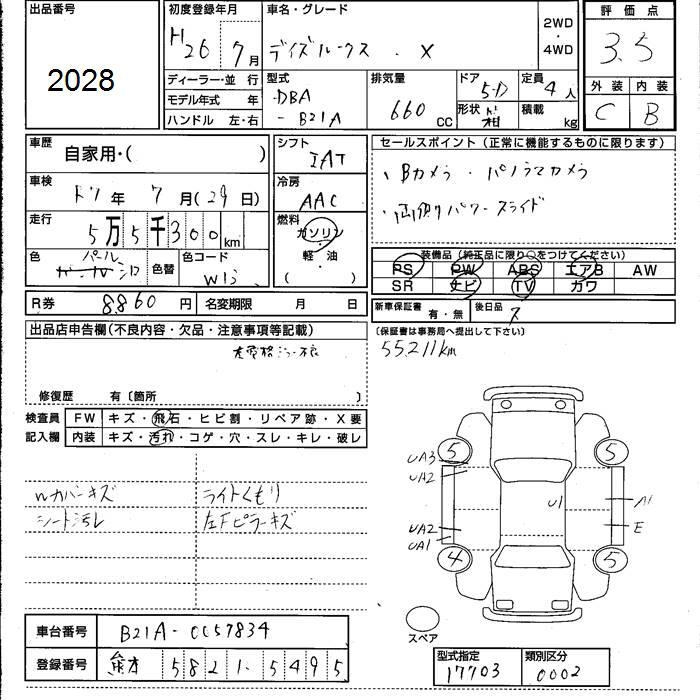 出品番号
2028
初度登録年月
H26 7月
車名・グレード
デイズルークス . X
2WD
・
4WD
評価点
3.5
外装 内装
C B
ディーラー・並行
モデル年式 年
ハンドル 左・右
型式
DBA
- B21A
排気量
660 cc
ドア
5D
形状
定員
4人
積載
kg
車歴
自家用・( )
車検
年 7月(29日)
走行
5万5千300km
色
パール
シロ
色替
色コード
シフト
IAT
冷房
AAC
燃料
ガソリン
軽・油
( )
セールスポイント(正常に機能するものに限ります)
、Bカメラ・パノラマカメラ
パワースライド
装備品(純正品に限り○をつけてください)
PS PW ABS エアB AW
SR ナビ TV カワ
R券 8860円 名変期限 月 日
新車保証書 有・無 後日品
(保証書は事務局へ提出して下さい)
55211km
出品店申告欄(不良内容・欠品・注意事項等記載)
修復歴 有〔箇所 〕
検査員
記入欄
FW キズ・飛石・ヒビ割・リペア跡・X要
内装 キズ・汚れ・コゲ・穴・スレ・キレ・破レ
カバーキズ
シート汚レ
ライトくもり
左Fピラーキズ
UA3
UA2
UA2
UA1
U1
A1
E
5
5
4
5
スペア
車台番号 B21A-0057834
登録番号 熊本 582 1-5495
型式指定
17703
類別区分
0002